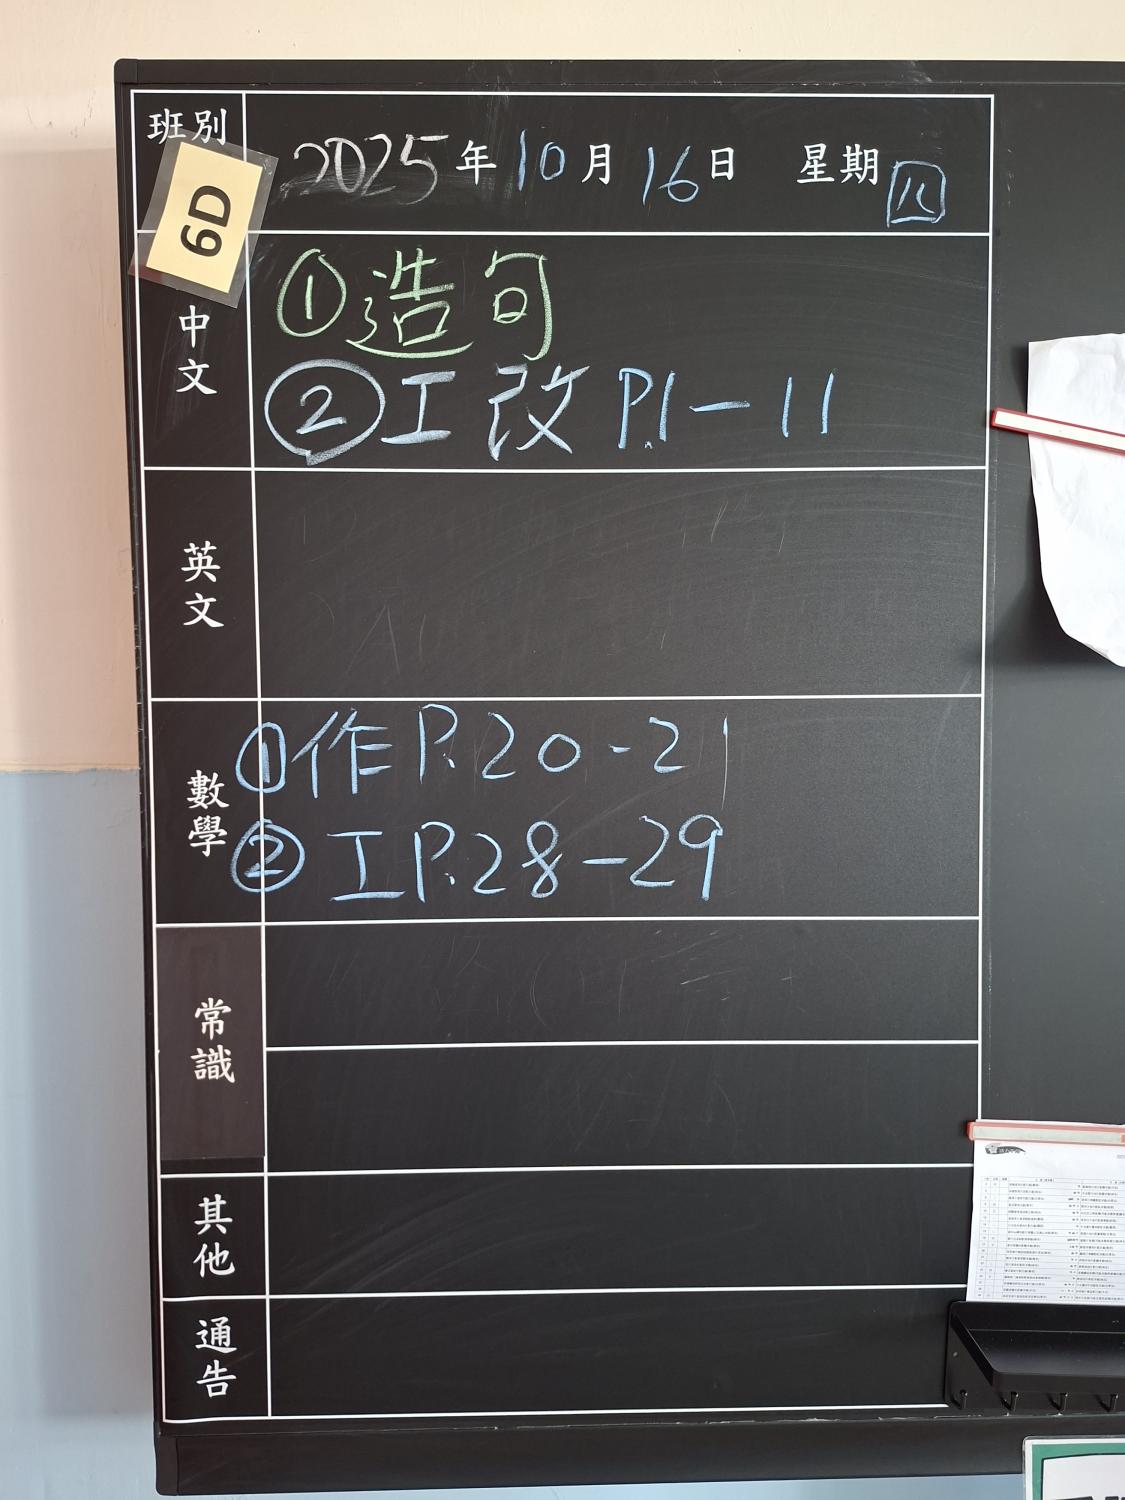 班別
6D
2025年10月16日 星期四
中文
①造句
②工改P.1-11
英文
數學
①作P.20-21
②工P.28-29
常識
其他
通告